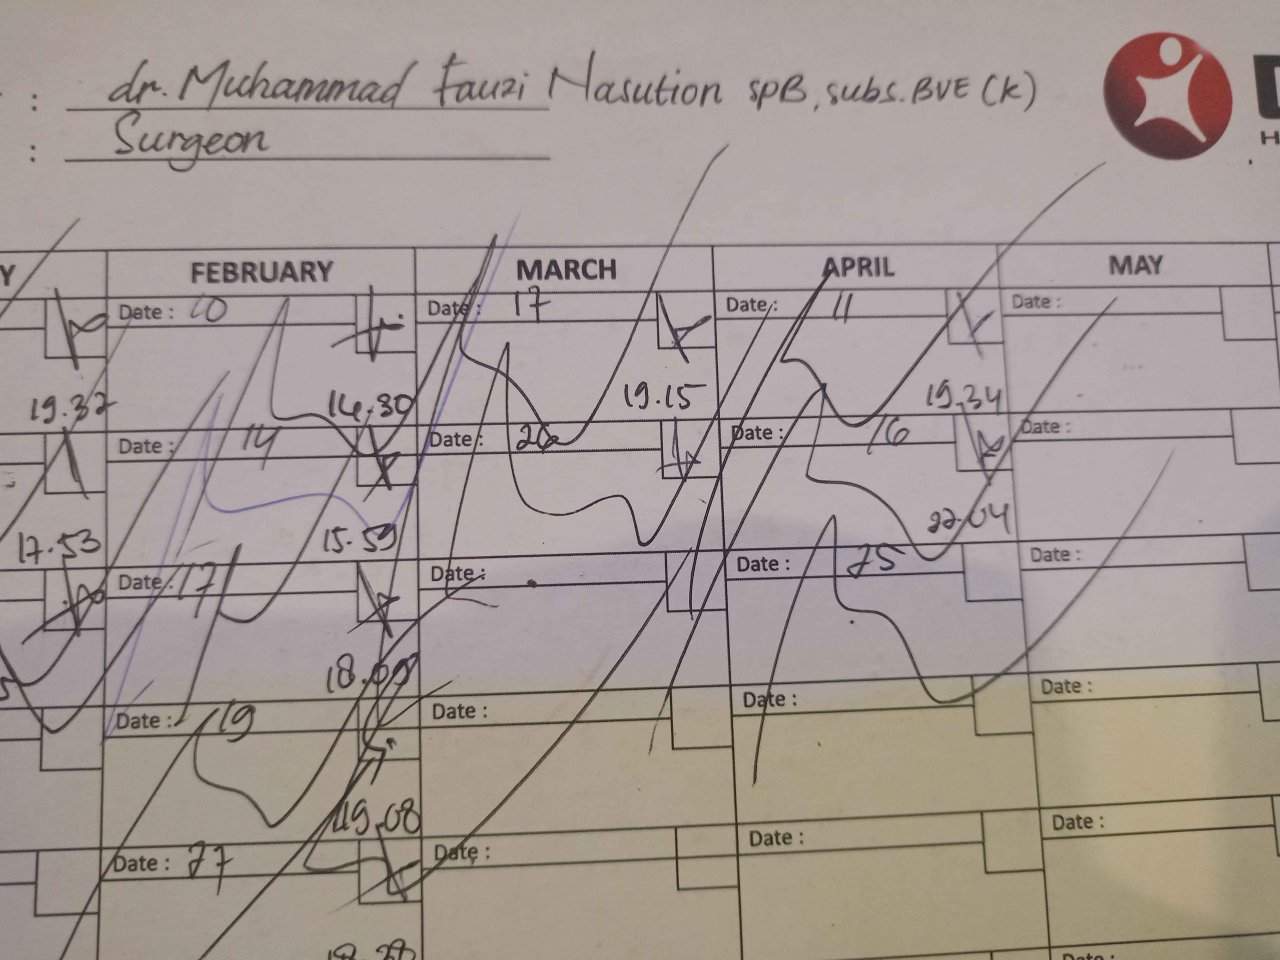 : dr. Muhammad Fauzi Nasution SpB, subs. BVE (K)
: Surgeon
H
Y FEBRUARY MARCH APRIL MAY
Date : 10 Date : 17 Date : 11 Date :
19.37 14.30 19.15 19.34
Date : 14 Date : 26 Date : 16 Date :
17.53 15.59 22.04
Date : 17 Date : Date : 25 Date :
18.09
Date : 19 Date : Date : Date :
19.08
Date : 27 Date : Date : Date :
Date :